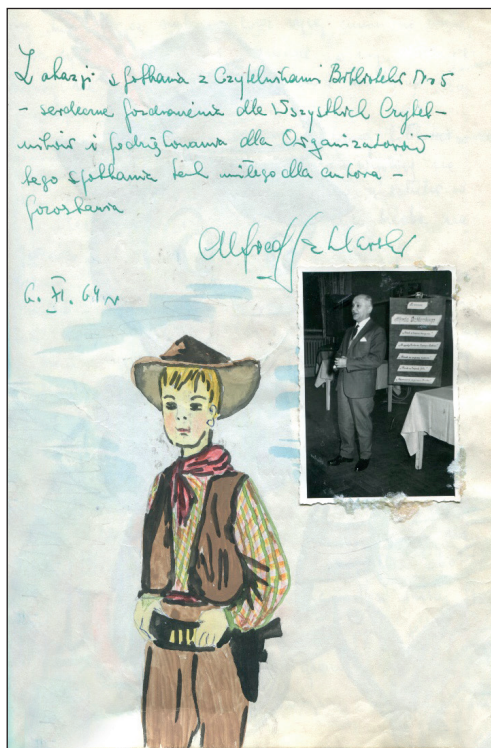 Z okazji spotkania z Czytelnikami Biblioteki Nr 5
- serdeczne pozdrowienia dla Wszystkich Czytel-
ników i podziękowania dla Organizatorów
tego spotkania tak miłego dla autora -
pozostawia
Alfred Szklarski
6. XI. 64 r